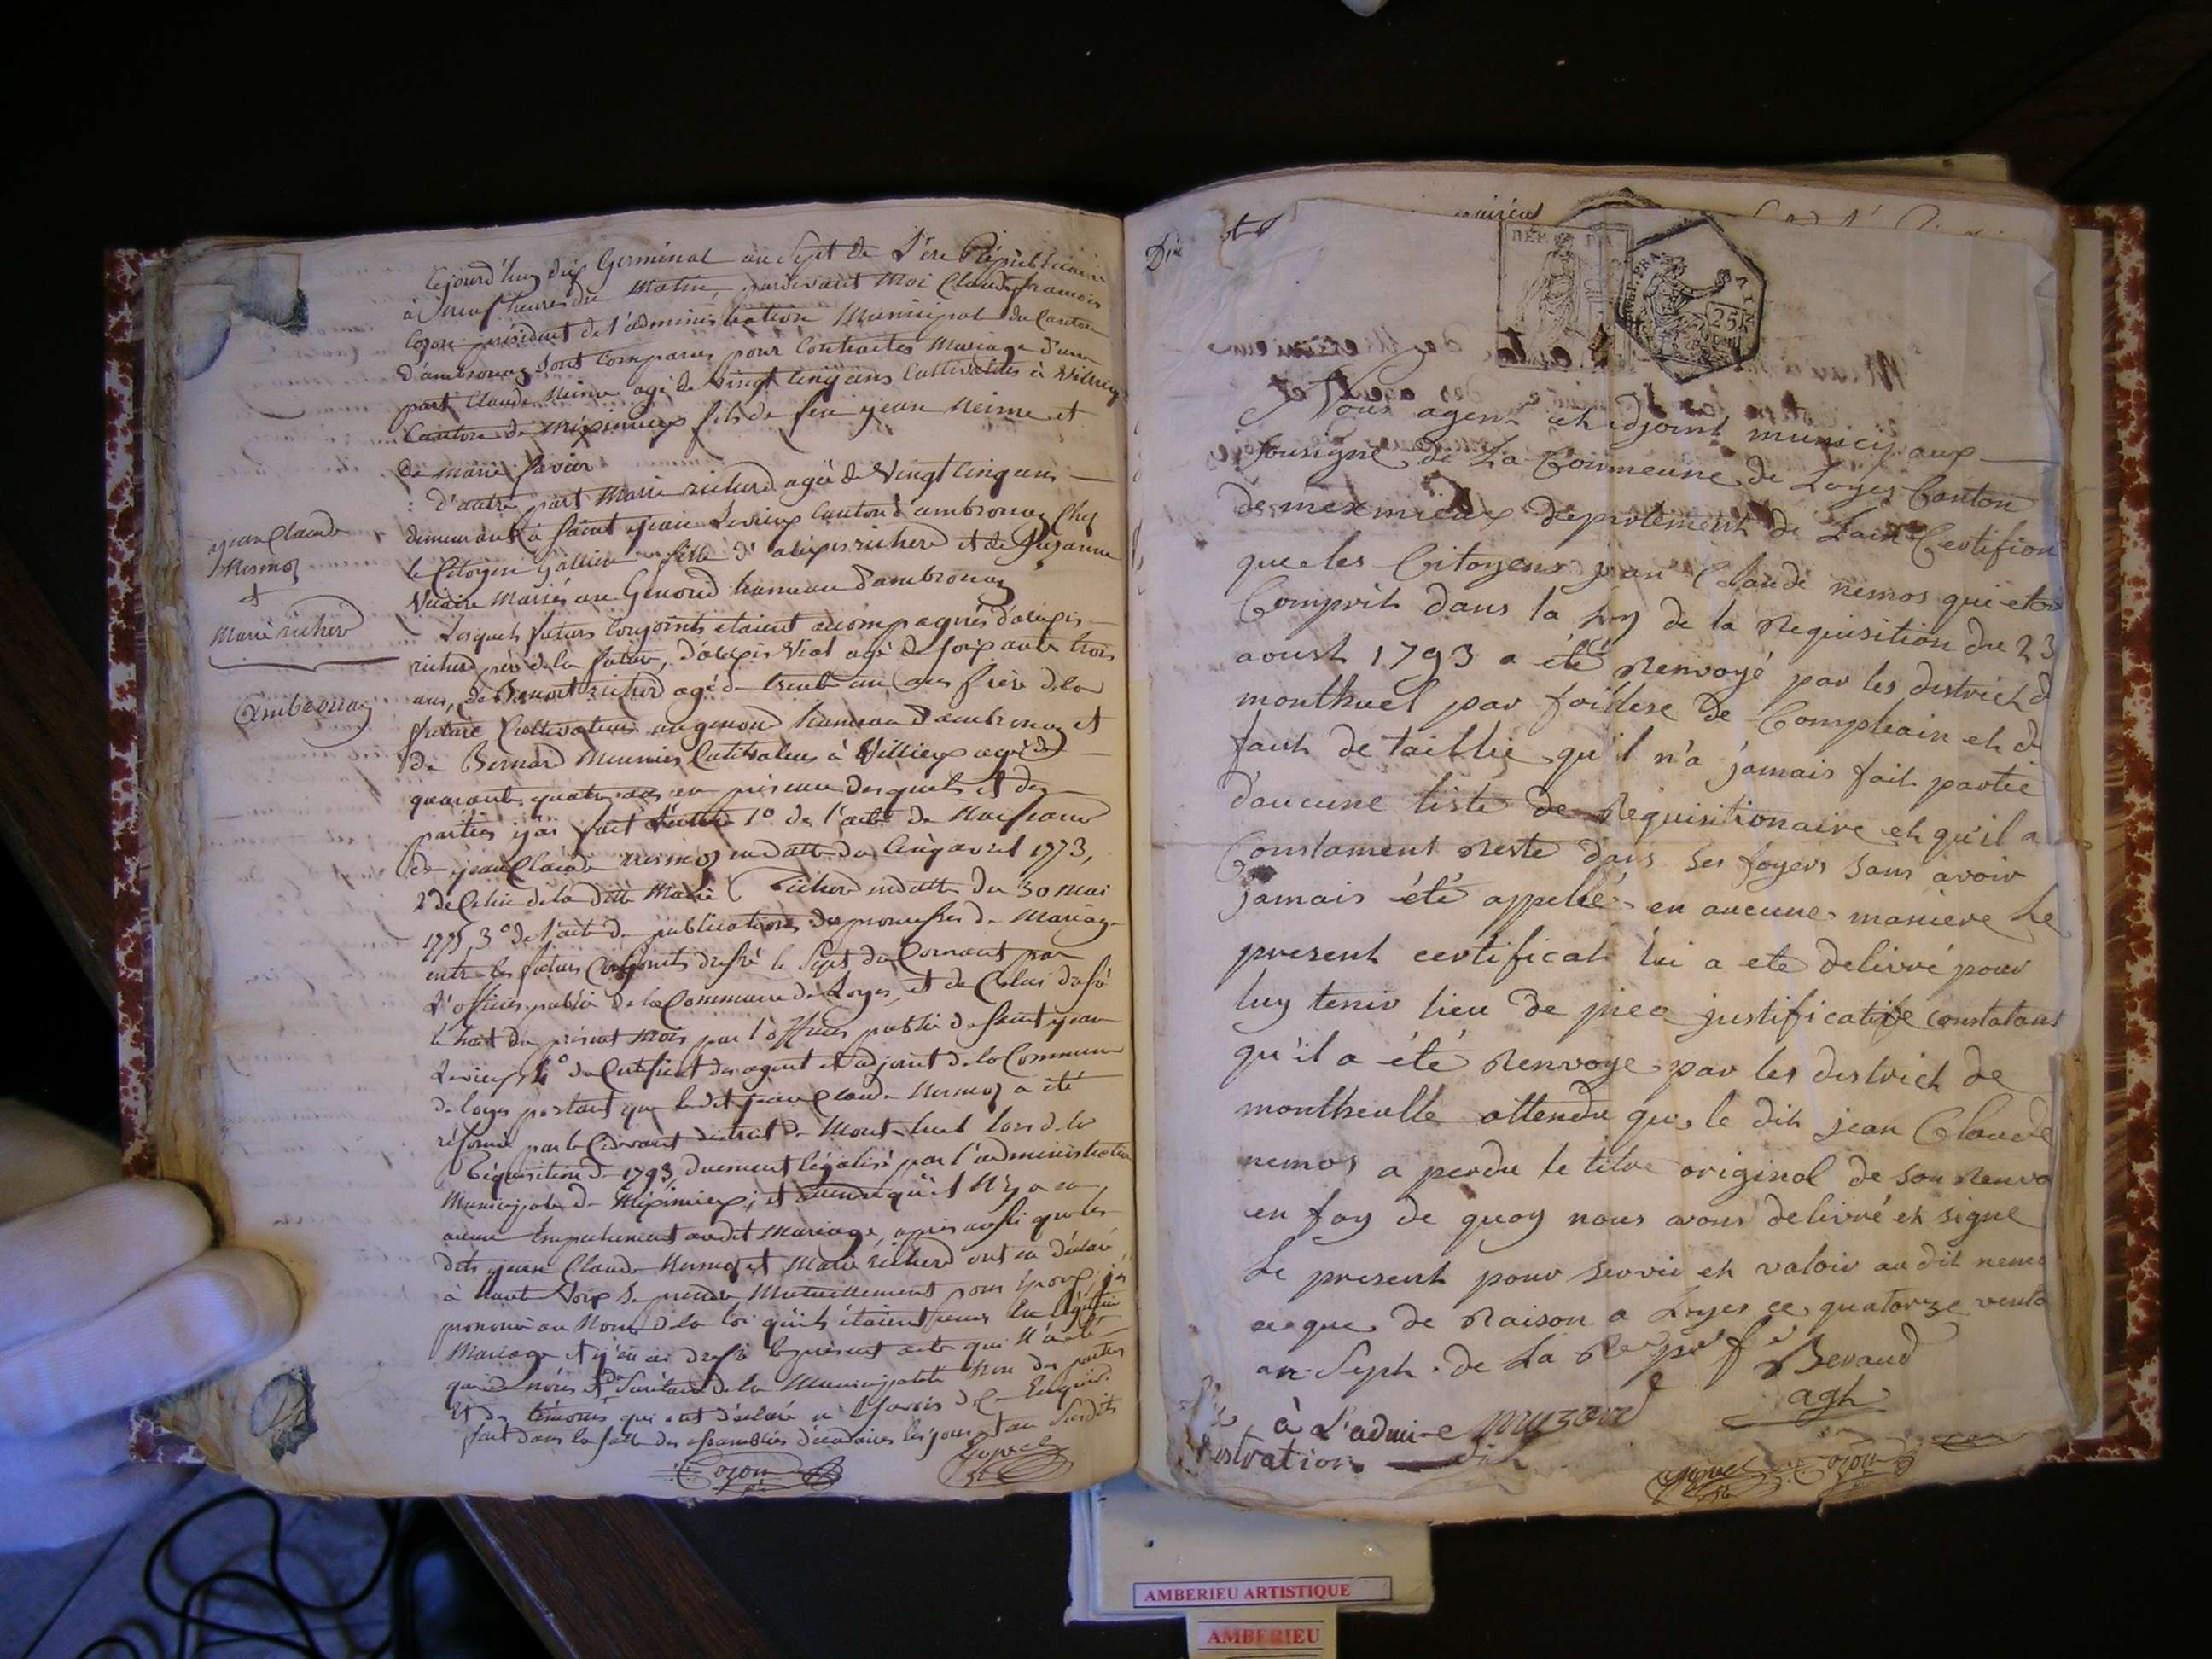 cejourd'huy dix Germinal an Sept de L'ère Républicaine
à Neuf heures du Matin, pardevant Moi Claude francois
Cozon président de l'administration Municipal du Canton
d'ambronay Sont Comparus pour Contracter Mariage d'une
part Claude Neime agé de Vingt Cinq ans Cultivateur à Villieux
Canton de Méximieux fils de feu jean Neime et
de marie favier
d'autre part Marie richerd agée de Vingt Cinq ans
demeurant à Saint jean Levieux Canton d'ambronay Chez
le Citoyen Gallien fille d'alexis richerd et de Suzanne
mariés au Genoud hameau d'ambronay
jean Claude
Nesmoz
+
Marie richerd
Ambronay
Lesquels futurs Conjoints etaient accompagnés d'alexis
richerd père de la future, d'alexis Viol agé de soixante trois
ans, de Benoit richerd agé de trente un ans frère de la
future Cultivateur au genoud hameau d'ambronay et
de Bernard Meunier Cultivateur à Villieux agé de
quarante quatre ans en présence desquels et des
parties j'ai fait lecture 1º de l'acte de Naissance
de jean Claude nesmoz en datte du Cinq avril 1773,
2º de Celui de la ditte Marie Richerd en datte du 30 mai
1775, 3º de l'acte de publications des promesses de Mariage
entre les futurs Conjoints dressé le Sept du Courant par
L'officier public de la Commune de Loyes, et de Celui dressé
le huit du présent Mois par l'officier public de Saint jean
Levieux 4º du Certificat des agent et adjoint de la Commune
de loyes portant que ledit jean Claude Nesmoz a été
réformé par le Cidevant district de Montluel lors de la
Réquisition de 1793, duement légalisé par l'administration
Municipale de Méximieux; et attendu qu'il N'y a eu
aucun Empechement audit Mariage, après aussi que les
dits jean Claude Nesmoz et Marie richerd ont eu déclaré
à haute Voix Se prendre Mutuellement pour époux, j'ai
prononcé au Nom de la loi qu'ils étaient unis En légitime
Mariage et j'en ai dressé le présent acte qui N'a été
Signé de Nous et du Secrétaire de la Municipalité Non des parties
Et des témoins qui ont déclaré ne Savoir de Ce Enquis.
fait dans la Salle des assemblées décadaires les jour et an Susdits
Cozon
Gonvel
Nous agent et adjoint municipaux
Sousigné de La Commeune de Loyes Canton
de meximieux depertement de Lain Certifion
que les Citoyens jean Claude nemos qui eton
Comprit dans la loy de la Requisition du 23
aoust 1793 a été Renvoyé par les district d
monthuel par foiblese de Complexin et de
faut de taillie qu'il n'a jamais fait partie
d'aucune liste de Requisitionaire et qu'il a
Constament Resté dans ses foyers sans avoir
jamais été appellé en aucune maniere Le
present certificat lui a ete delivré pour
luy tenir lieu de piece justificatife constatant
qu'il a été Renvoye par les district de
montheulle attendu que le dit jean Claude
nemos a perdu le titre original de son Renvo
en foy de quoy nous avons delivré et signe
Le present pour servir et valoir au dit nemo
ce que de Raison a Loyes ce quatorze vento
an Seph de La Rep fse
Beraud
agt
à L'admi-
nistration
muzard
Gonvel
Cozon
RÉP
25
AIN
AMBERIEU ARTISTIQUE
AMBERIEU